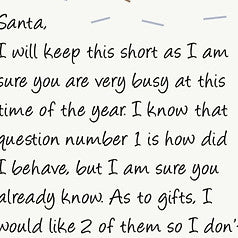 Santa,
I will keep this short as I am
sure you are very busy at this
time of the year. I know that
question number 1 is how did
I behave, but I am sure you
already know. As to gifts, I
would like 2 of them so I don'